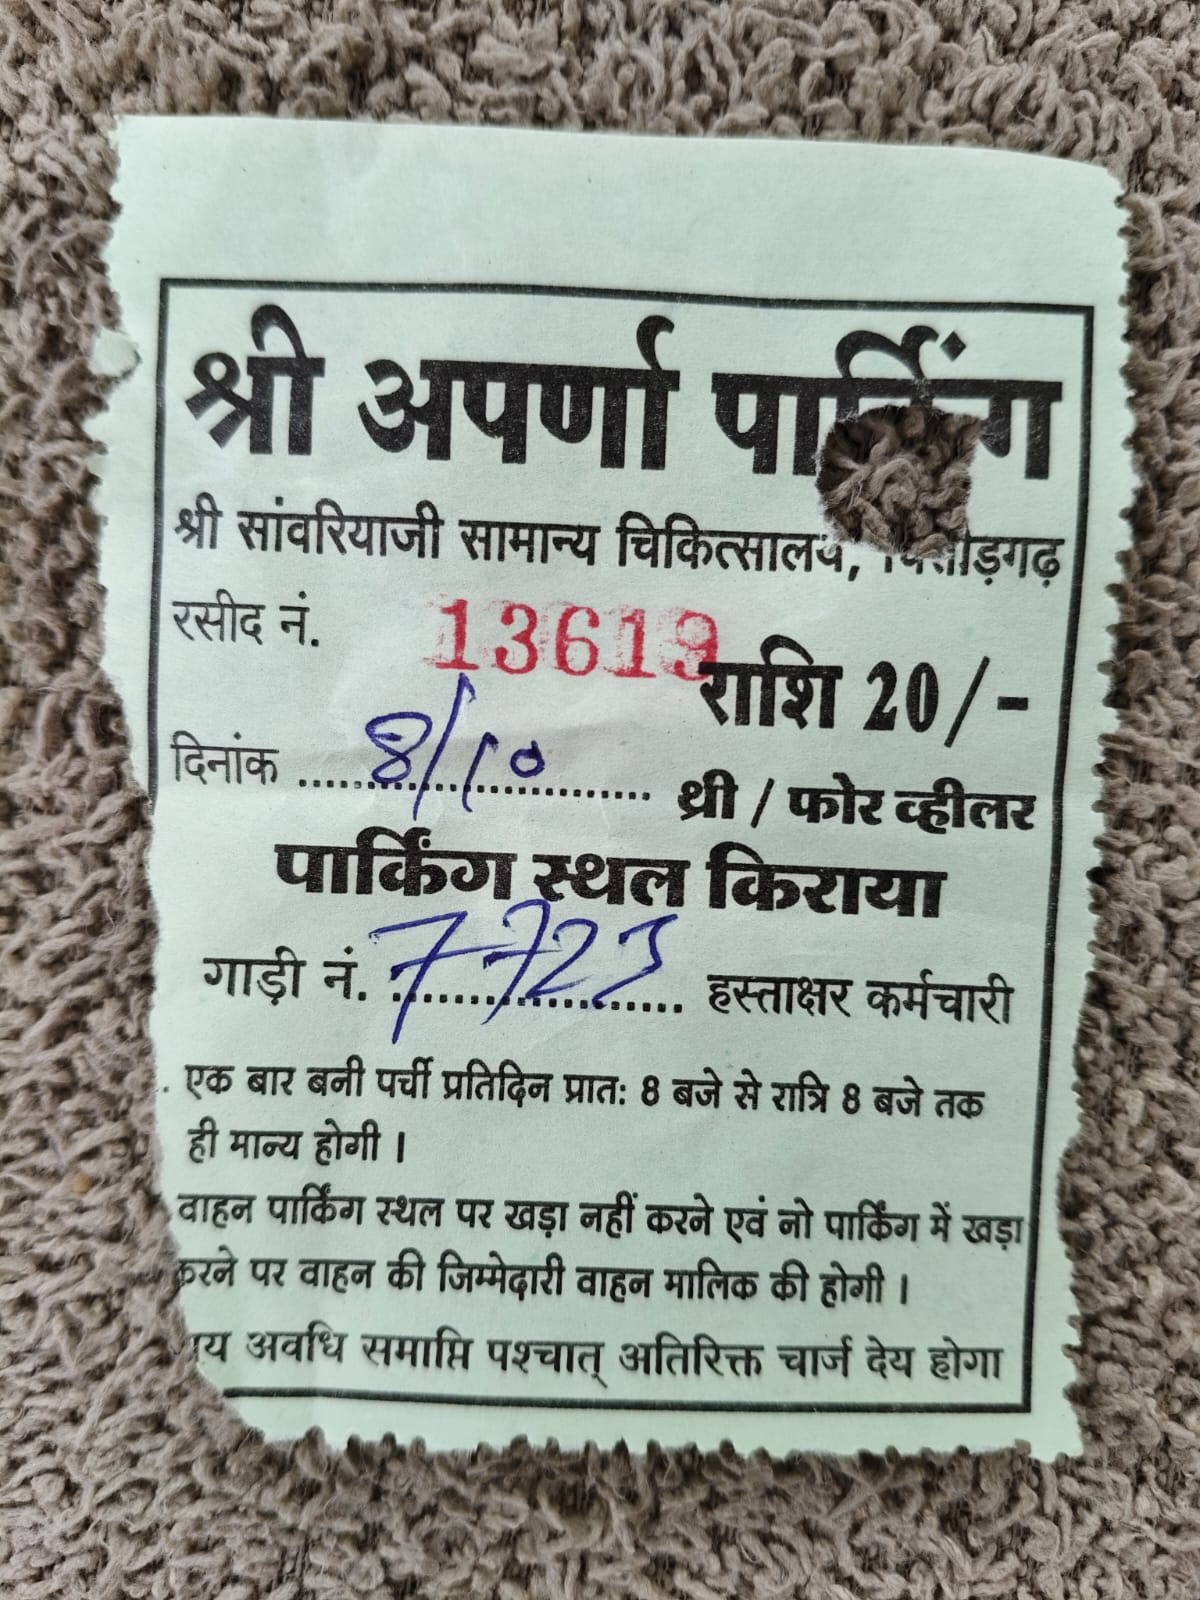 श्री अपर्णा पार्किंग
श्री सांवरियाजी सामान्य चिकित्सालय, चित्तौड़गढ़
रसीद नं. 13619
राशि 20/-
दिनांक 8/10
थ्री / फोर व्हीलर
पार्किंग स्थल किराया
गाड़ी नं. 7723 हस्ताक्षर कर्मचारी
. एक बार बनी पर्ची प्रतिदिन प्रातः 8 बजे से रात्रि 8 बजे तक
ही मान्य होगी ।
वाहन पार्किंग स्थल पर खड़ा नहीं करने एवं नो पार्किंग में खड़ा
करने पर वाहन की जिम्मेदारी वाहन मालिक की होगी ।
अवधि समाप्ति पश्चात् अतिरिक्त चार्ज देय होगा